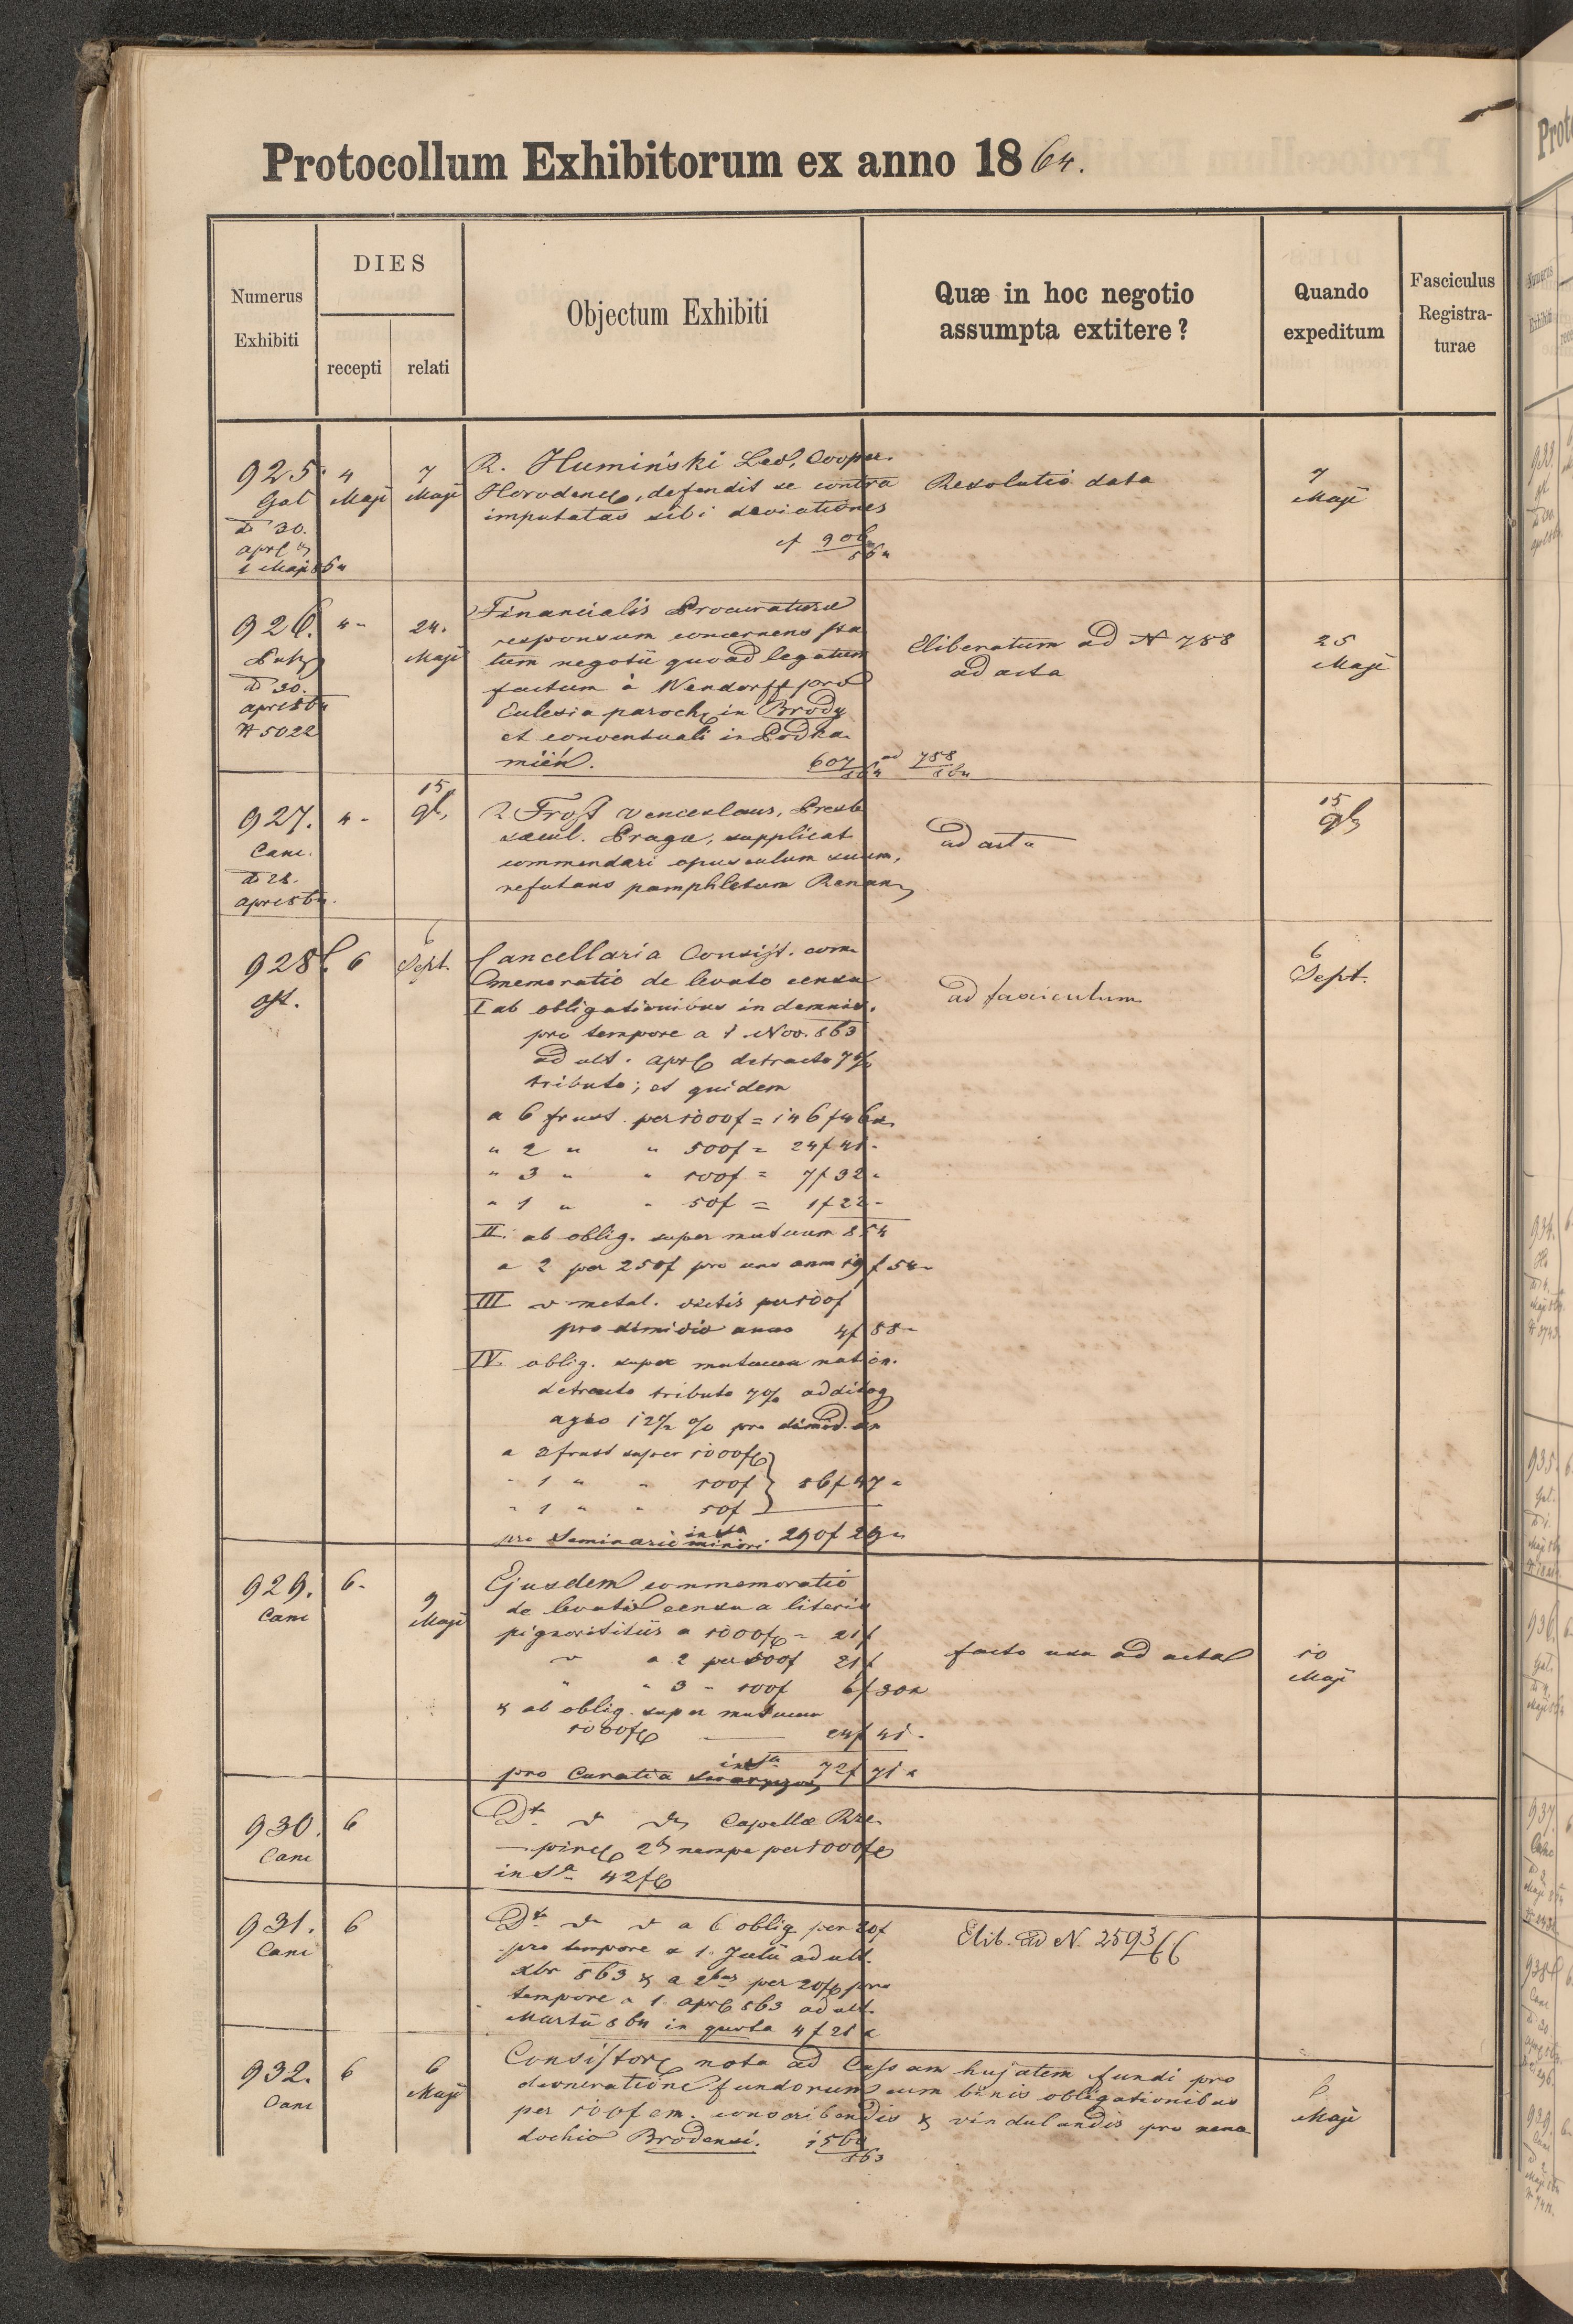 Protocollum Exhibitorum ex anno 1864.
Numerus Exhibiti
DIES
recepti
relati
Objectum Exhibiti
Quæ in hoc negotio assumpta extitere?
Quando expeditum
Fasciculus Registra-turae
925.
4 Maji
7 Maji
R. Humiński Leo, Cooper.
Horodenc, defendit se contra
imputatas sibi deviationes
cf 906/864
Resolutio data
7 Maji
Gal
dto 30.
Apr
1 Maji 864
926.
4-
24. Maji
Financialis Procuraturæ
responsum concernens sta
tum negotii quoad legatum
factum à Wendorff pro
Ecclesia paroch in Brody
et conventuali in Podka-
mień.
607/864 ad 758/864
Eliberatum ad N 758
ad acta
25 Maji
dto 30.
Apr 864
N 5022
927.
4-
15
R. Frost Venceslaus, Presb
sæcul. Pragæ, supplicat
commendari opusculum suum,
refutans pamphletum Renan
ad acta
15
Canc.
dto 28.
Apr 864.
928.
6
6 Sept.
Cancellaria Consist. com-
memoratio de levato censu
I ab obligationibus indemnis.
pro tempore a 1. Nov. 863
ad ult. Apr detracto 7%
tributo; et quidem
a 6 frust. per 1000f = 146f46x
" 2 " " 500f = 24f41-
" 3 " " 100f = 7f32-
" 1 " " 50f = 1f22-
II. ab oblig. super mutuum 854
a 2 per 250f pro uno anno 19f 54-
III " metal. per 100f
pro dimidio anno 4f 88-
IV. oblig. super mutuum nation.
detracto tributo 7%
agio 12½ % pro
a 2 frust super 1000f
" 1 " " 100f 86f47-
" 1 " " 50f
pro Seminario minori insa 290f 29-
ad fasciculum
6 Sept.
929.
6-
9 Maji
Ejusdem commemoratio
de levato censu a literis
pignorititiis a 1000f = 21f
" a 2 per 500f 21f
" " 3 " 100f 6f30x
& ab oblig. super mutuum
1000f 24f 41-
insa 72f 71x
pro Curatia
facto usu ad acta
10 Maji
Canc
930.
6
Canc
Dto Capellæ Rze-
pinc nempe per 1000f
in Sa 42f
931.
6
Canc
Dto a 6 oblig per 20f
pro tempore a 1. Julii ad ult.
Xbr 863 & a 2bus per 20f pro
tempore a 1. Apr 863 ad ult.
Martii 864 in quota 4f21x
Elib. ad N. 2593/66
932.
6
6 Maji
Canc
Consistor nota ad Cassam hujatem fundi pro
deoneratione fundorum cum binis obligationibus
per 100f cm. conscribendis & vinculandis pro xeno-
dochio Brodensi. 1564/863
6. Maji